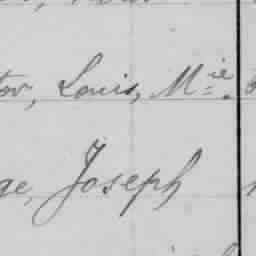 tor, Louis, Mie.
ge, Joseph